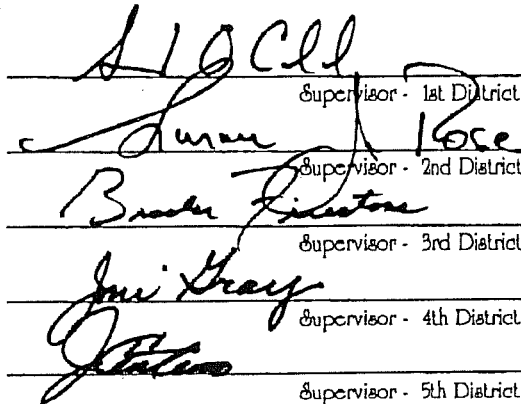 Supervisor - 1st District
Susan J Rose
Supervisor - 2nd District
Brooks Firestone
Supervisor - 3rd District
Joni Gray
Supervisor - 4th District
Supervisor - 5th District